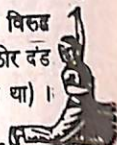 विरुद्ध
ठोर दंड
था) ।